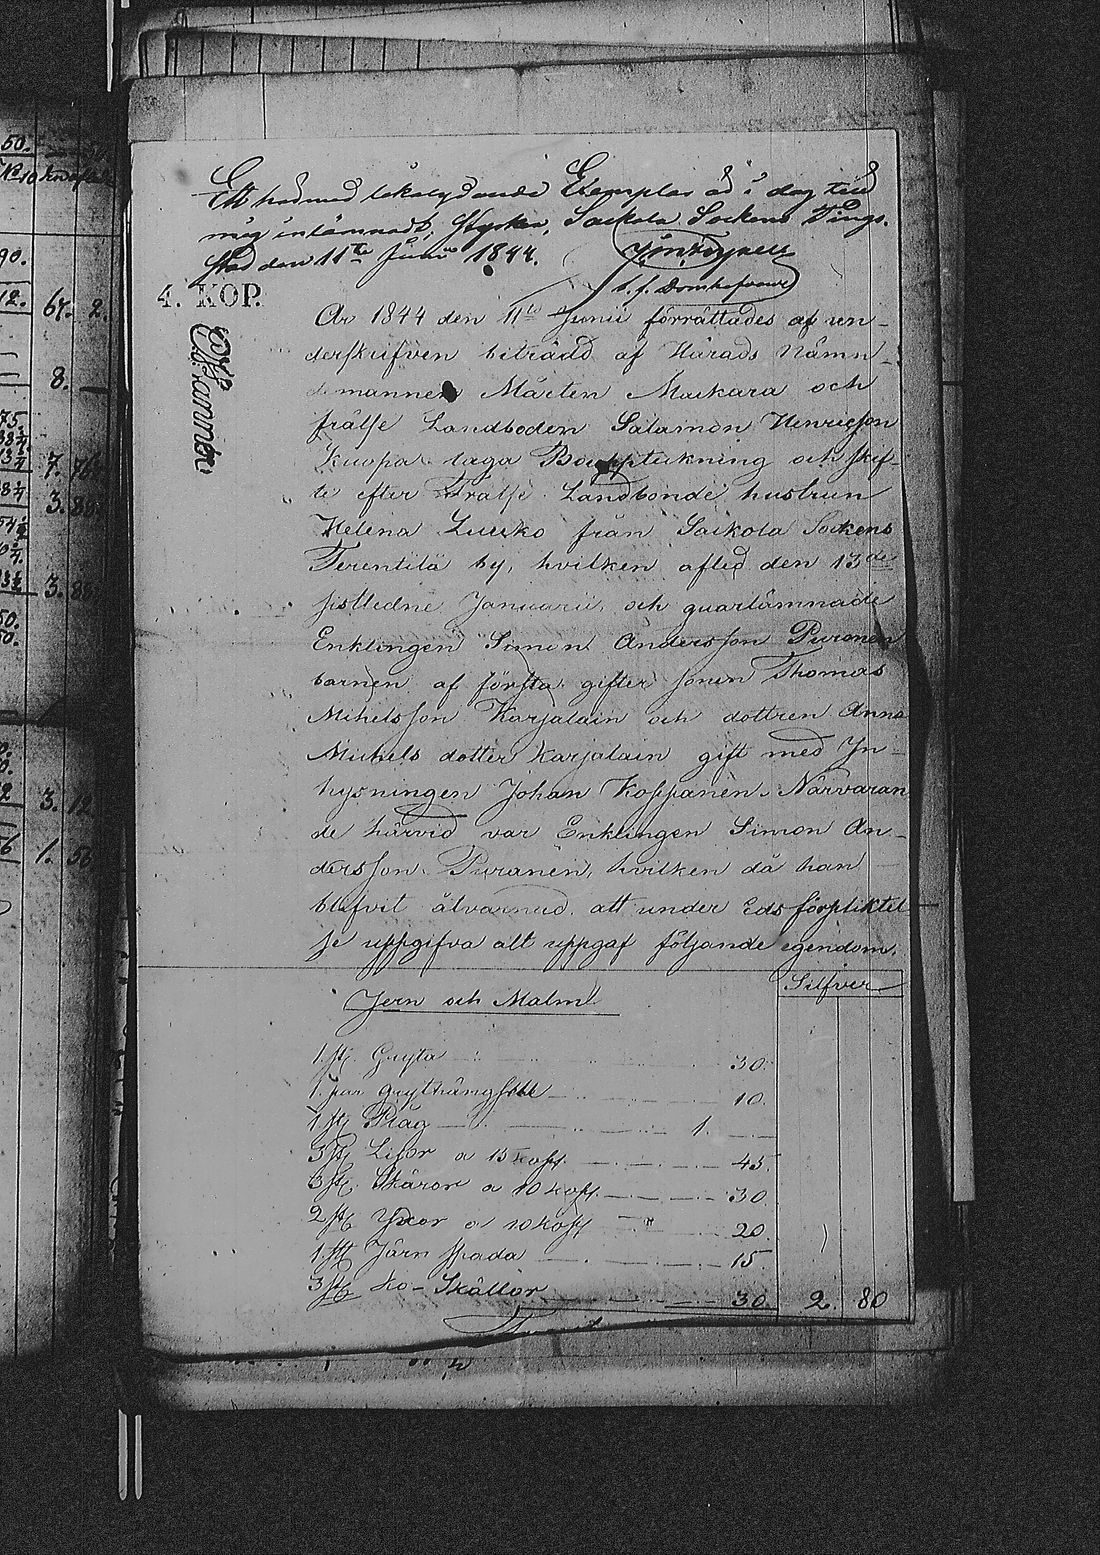 Ett härmed likalydande Exemplar är i dag till
mig inlämnadt, styrker, Sackola Sockens Tings-
stad den 11te Junii 1844.
t. f. Domhafvande
4. KOP.
År 1844 den 11te Junii förrättades af un-
derskrifven biträdd af Härads Nämn-
demannen Mårten Muckara och
frälse Landboden Salamon Henricsson
Kuopa laga Bouppteckning och skif-
te efter Frälse Landbonde hustrun
Helena Lucko från Sackola Sockens
Terentilä by, hvilken afled den 13de
sistledne Januarii, och quarlämnade
Enklingen Simon Andersson Puranen
barnen af första gifter sonen Thomas
Mihelsson Karjalain och dottren Anna
Michels dotter Karjalain gift med In-
hysningen Johan Koppanen. Närvaran
de härvid var Enklingen Simon An-
dersson Puranen, hvilken då han
blifvit åtvarnad att under Eds förpliktel
se uppgifva allt uppgaf följande egendom.
Silfver
Jern och Malm
1 st. Gryta 30.
1. par grythängslle 10.
1 st Plog 1.
3 st Lior a 15 kop. 45.
3 st. Skäror a 10 kop. 30
2 st Yxor a 10 kop 20.
1 st Järn spada 15
3 st ko-Skällor 30. 2. 80
50.
No 10
90.
12. 67. 2.
8.
75.
7.
3. 88
3. 88
50.
50.
3. 12
1. 56